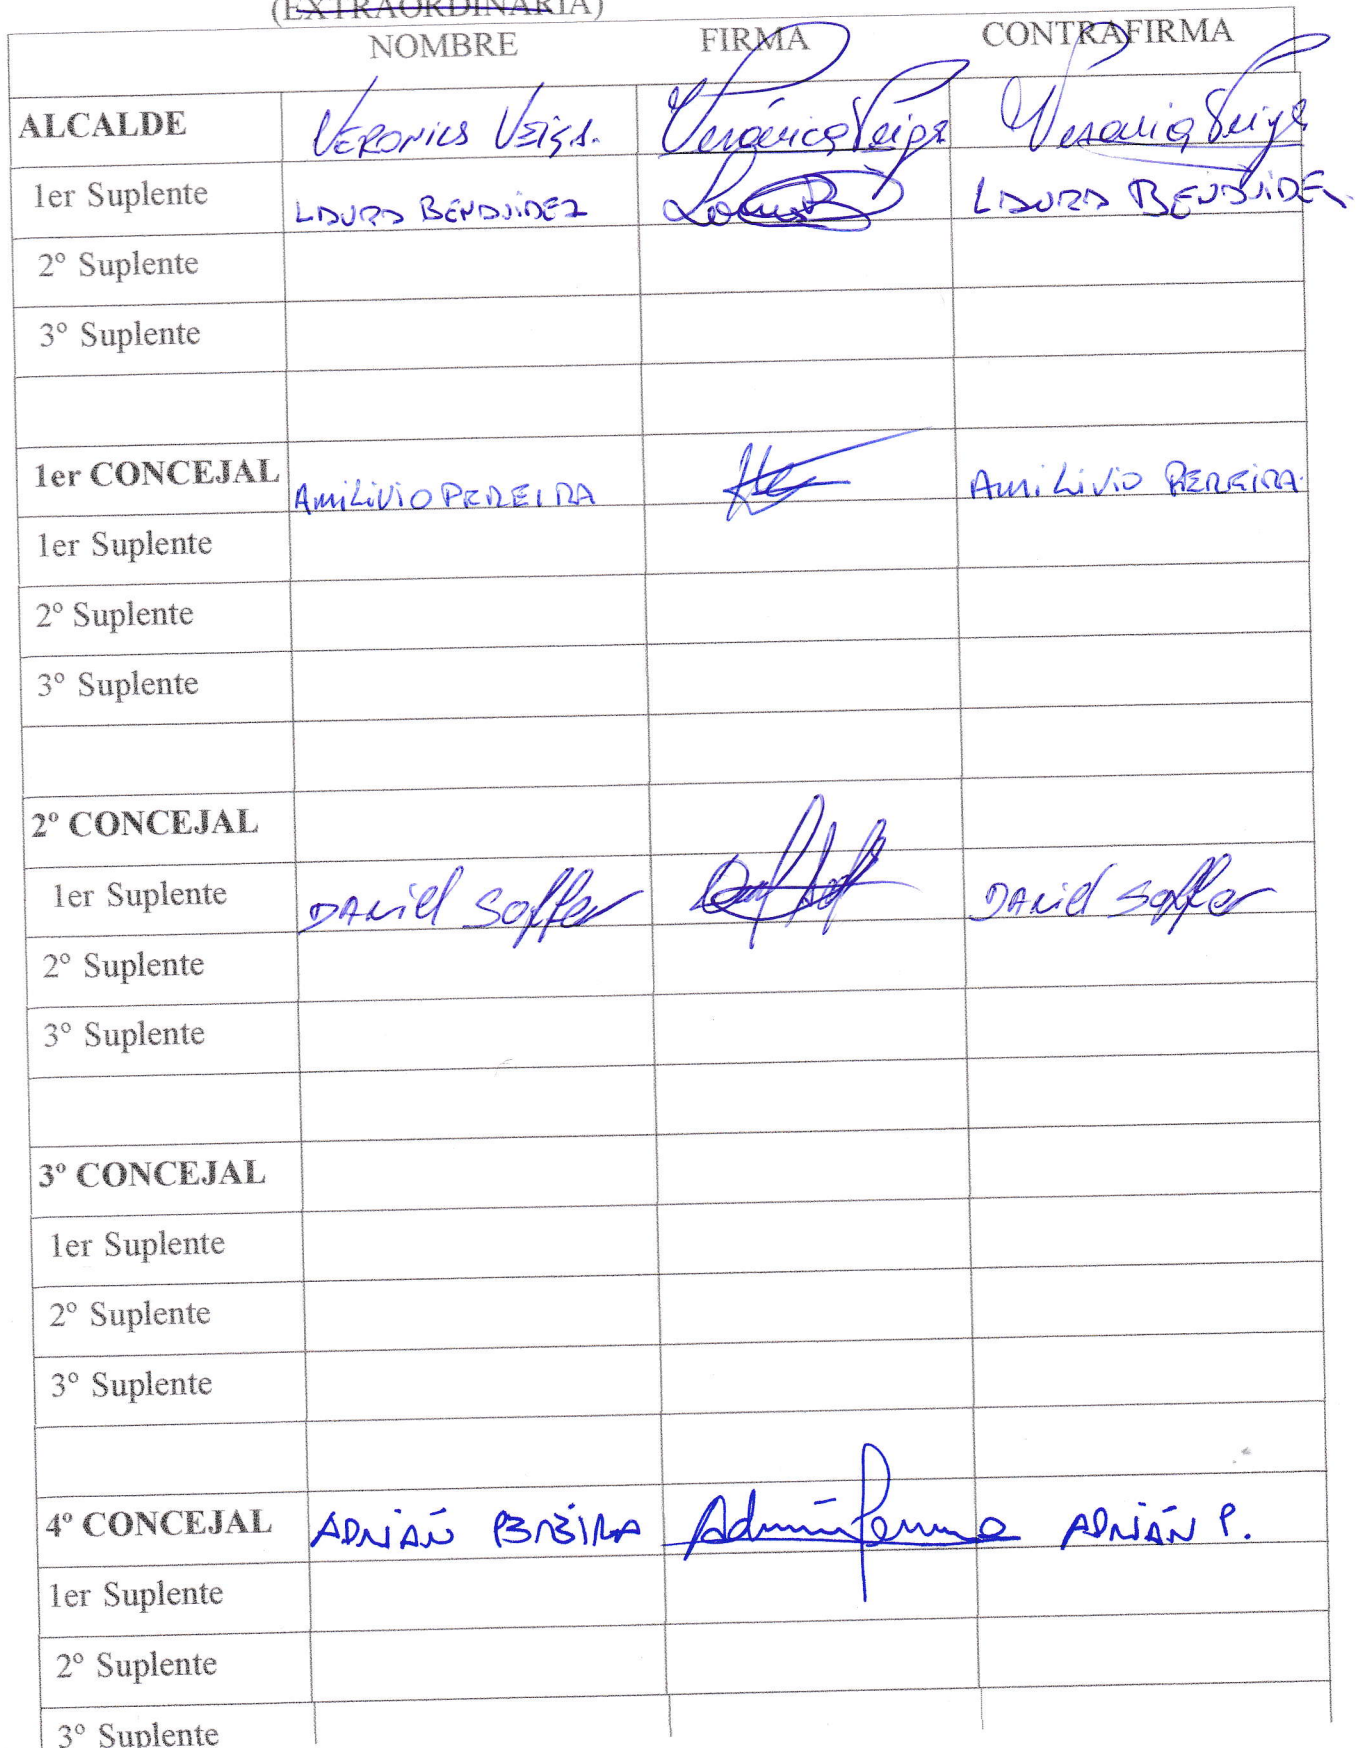 (EXTRAORDINARIA)
NOMBRE FIRMA CONTRAFIRMA
ALCALDE VERONICA VEIGA. Verónica Veiga Veronica Veiga
1er Suplente LAURA BENAVIDEZ LAURA BENAVIDEZ
2º Suplente
3º Suplente
1er CONCEJAL AMILIVIO PEREIRA AMILIVIO PEREIRA.
1er Suplente
2º Suplente
3º Suplente
2º CONCEJAL
1er Suplente DANIEL Soffer DANIEL Soffer
2º Suplente
3º Suplente
3º CONCEJAL
1er Suplente
2º Suplente
3º Suplente
4º CONCEJAL ADRIÁN PEREIRA Adrián ADRIÁN P.
1er Suplente
2º Suplente
3º Suplente